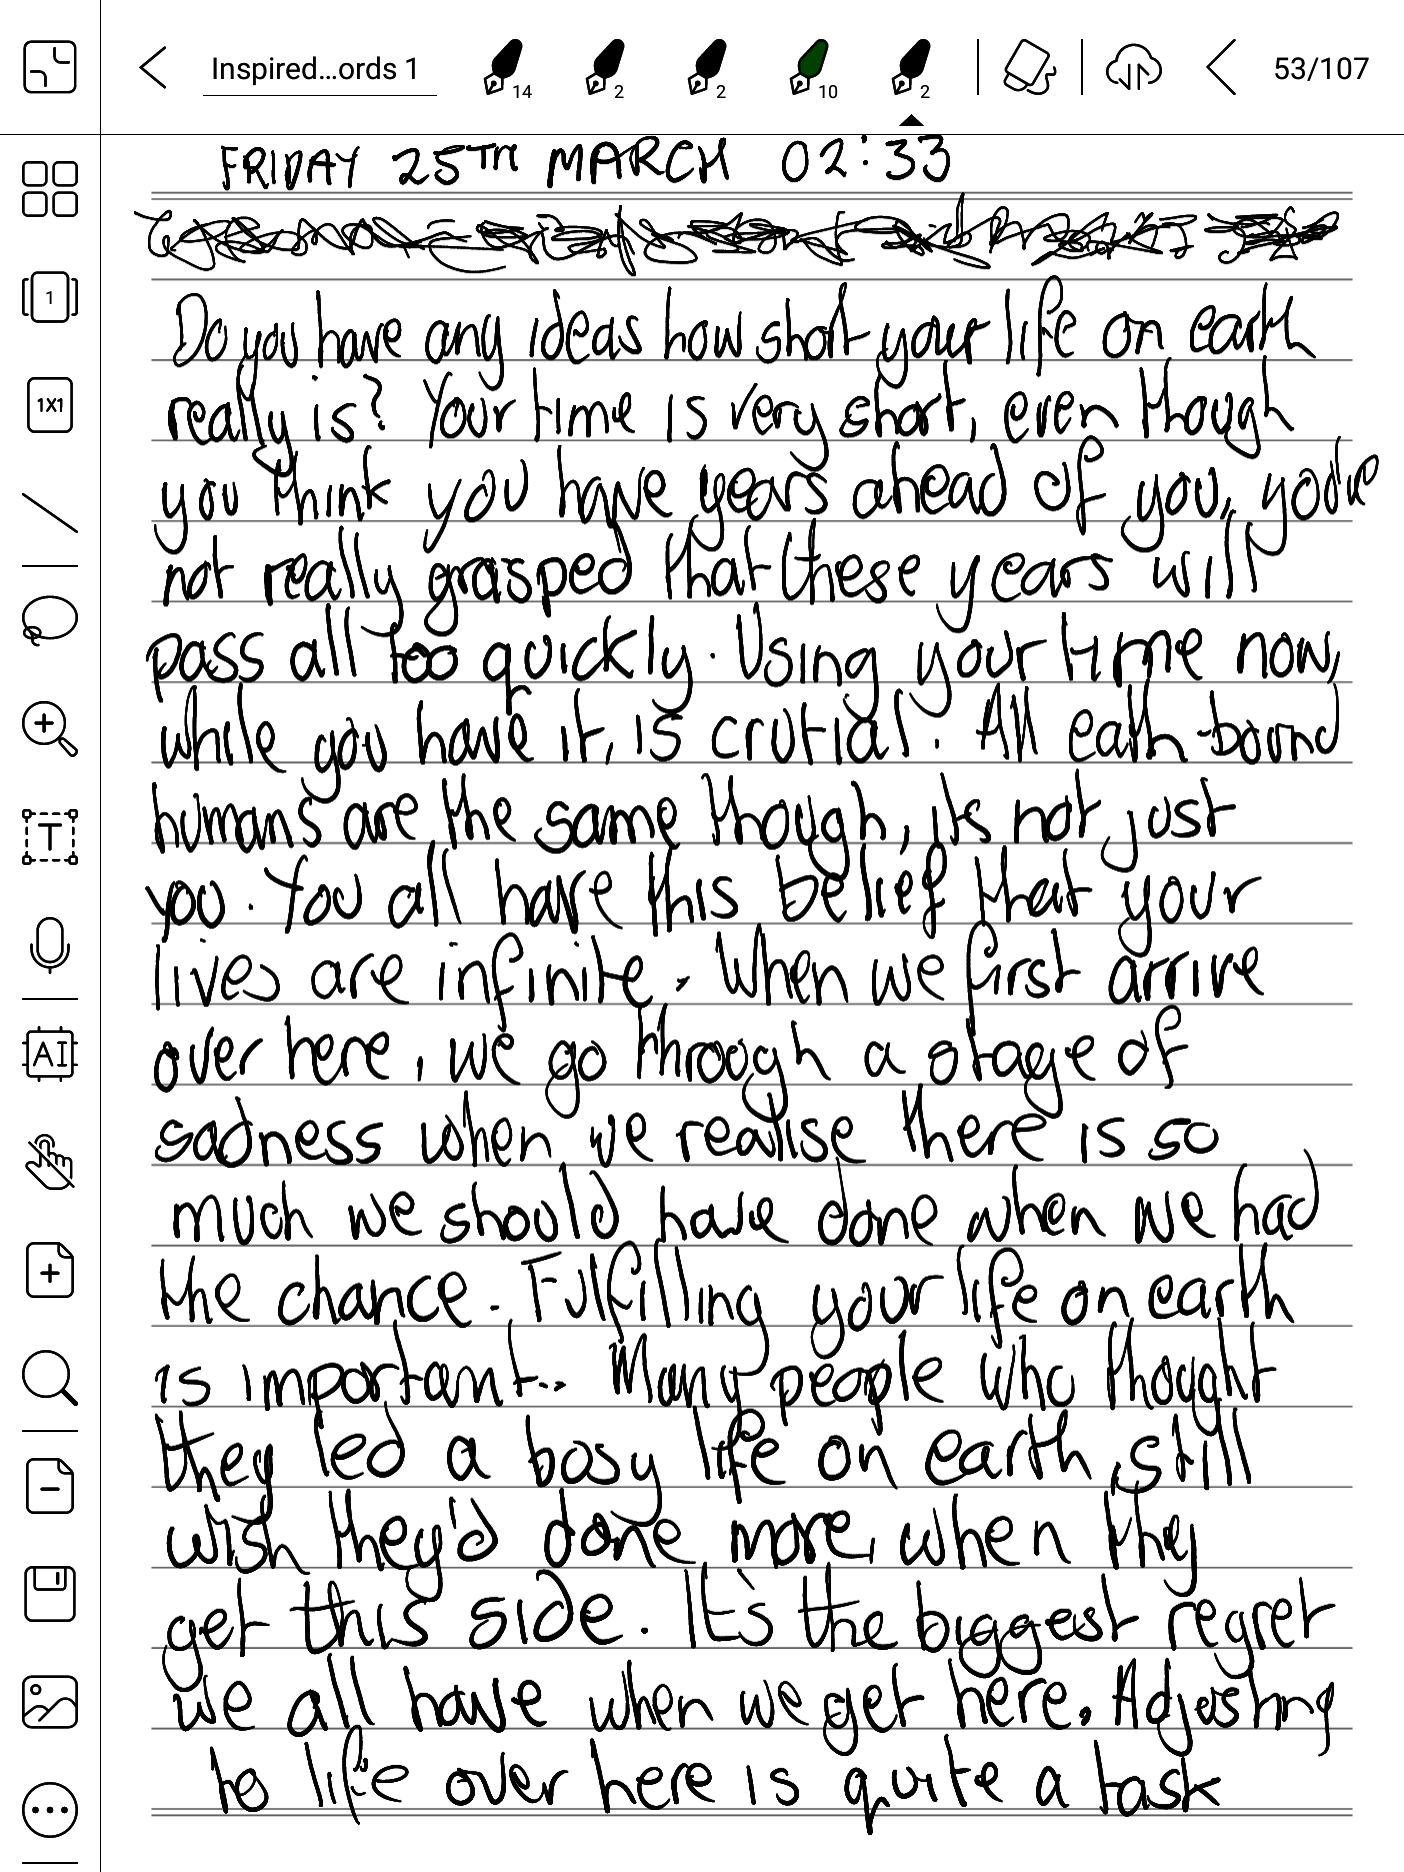 Inspired...ords 1
14
2
2
10
2
53/107
FRIDAY 25TH MARCH 02:33
Do you have any ideas how short your life on earth
really is? Your time is very short, even though
you think you have years ahead of you, you've
not really grasped that these years will
pass all too quickly. Using your time now,
while you have it, is crutial. All eath-bound
humans are the same though, its not just
you. You all have this belief that your
lives are infinite. When we first arrive
over here, we go through a stage of
sadness when we realise there is so
much we should have done when we had
the chance. Fulfilling your life on earth
is important.. Many people who thought
they led a busy life on earth, still
wish they'd done more, when they
get this side. It's the biggest regret
we all have when we get here. Adjusting
to life over here is quite a task
1
1X1
T
AI